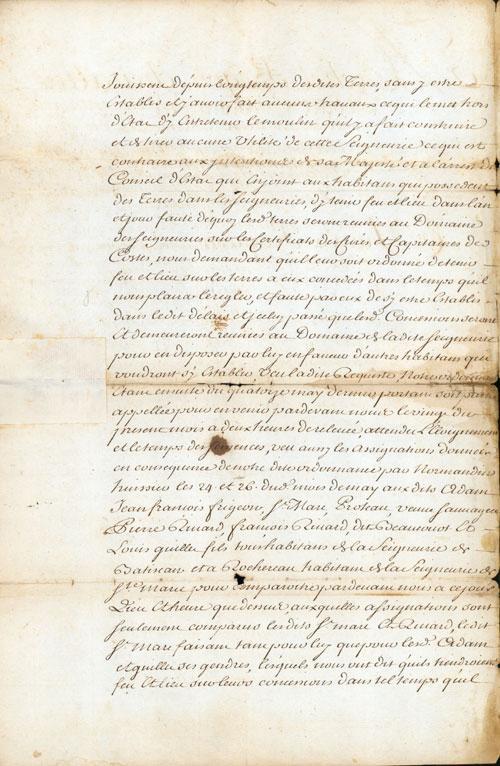 Jouissent depuis longtemps desdites Terres sans y estre
Establés et y avoir fait aucuns travaux ce qui le met hors
d'Etat d'y Entretenir le moulin qu'il y a fait construire
et de tirer aucune Utilité de cette Seigneurie ce qui est
contraire aux jntentions de sa Majesté et a l'arrest du
Conseil d'Estat qui Enjoint aux habitans qui possedent
des Terres dans les Seigneuries, d'y tenir feu et lieu dans l'an
et jour faute de quoy lesd. terres seront reunies au Domaine
des seigneuries sur les Certificats des Curés et Capitaines des
Costes, nous demandant qu'il leur soit ordonné de tenir
feu et lieu sur les terres a eux concedées dans le temps qu'il
nous plaira leregler, et faute par eux de s'y estre Establis
dans ledit delai et jceluy passé que lesd. Concessions seront
Et demeureront reunies au Domaine de ladite seigneurie
pour en disposer par luy en faveur d'autres habitans qui
voudront s'y Establir. Veu ladite Requeste, Notre ordonnance
Estant ensuite du quatorze may dernier portant soit parties
appellées pour en venir pardevant nous le vingt du
present mois a deux heures de relevée, attendu L'Eloignement
et le temps des semences, veu aussy les assignations données
en consequence de notre dite ordonnance par Normandin
huissier les 24 et 26. dud. mois de may aux dits Adam
Jean françois frigeon, St. Marc, Proteau, veuve sauvageau
Pierre Rivard, françois Rivard, dit Beaucourt Et
Louis quille fils tous habitans de la Seigneurie de
Batiscan et a Rochereau habitant de la Seigneurie de
Ste. Marie pour comparoitre pardevant nous a ce jour
Lieu et heure que dessus auxquelles assignations sont
seulement comparus lesdits St. marc Et Rivard, ledit
St. Marc faisant tant pour luy que pour lesd. Adam
et quille ses gendres, lesquels nous ont dit qu'ils tiendroient
feu Et Lieu sur leurs concessions dans tel temps qu'il